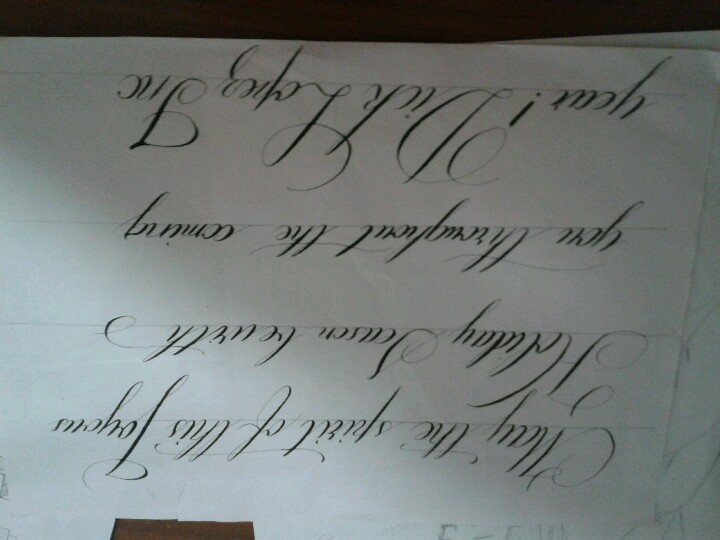 May the spirit of this Joyous
Holiday Season be with
you throughout the coming
year! Dick Lopez Inc